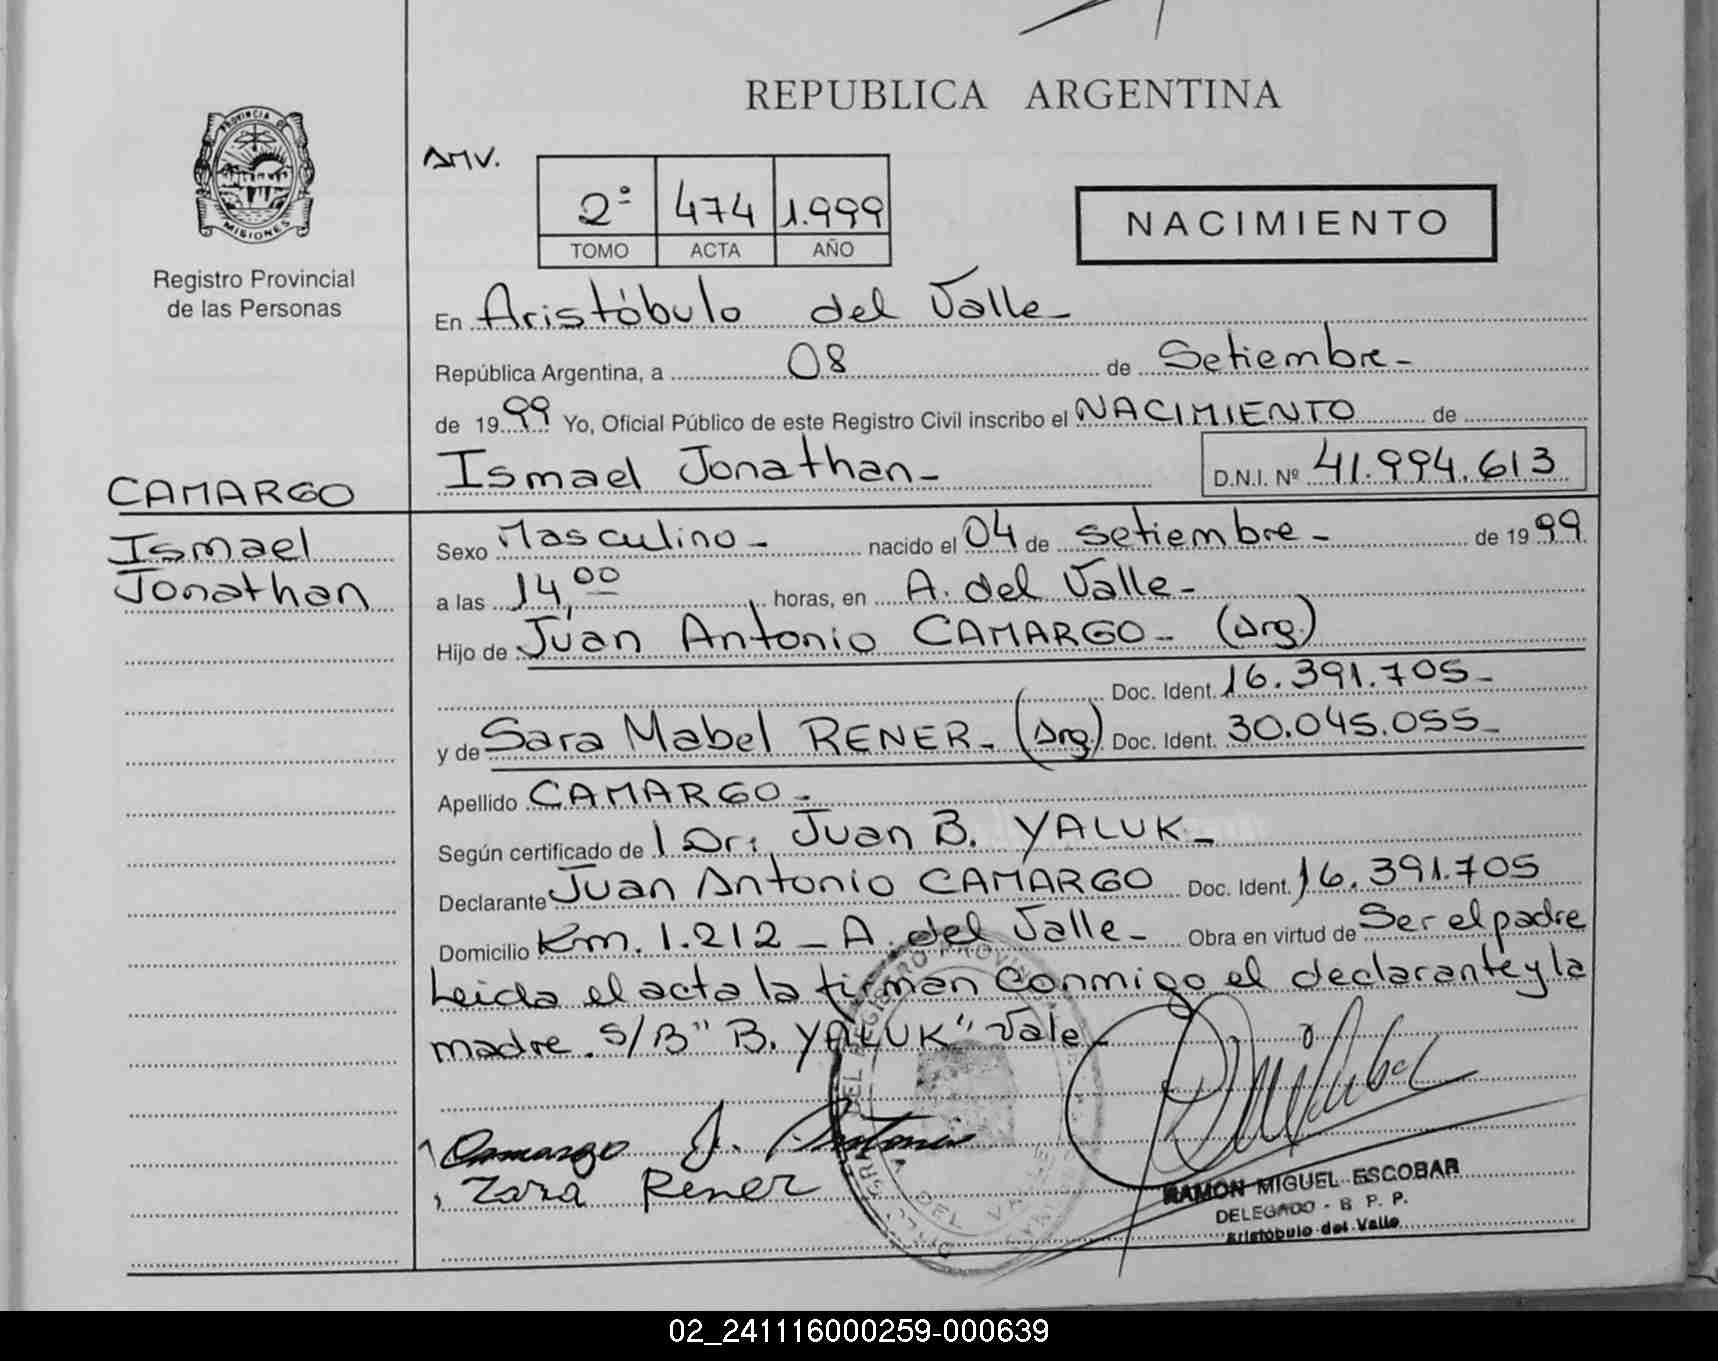 REPUBLICA ARGENTINA
PROVINCIA DE
MISIONES
Registro Provincial
de las Personas
AMV.
2º 474 1.999
TOMO ACTA AÑO
NACIMIENTO
En Aristóbulo del Valle-
República Argentina, a 08 de Setiembre-
de 1999 Yo, Oficial Público de este Registro Civil inscribo el NACIMIENTO de
Ismael Jonathan- D.N.I. Nº 41.994.613
CAMARGO
Ismael
Jonathan
Sexo Masculino- nacido el 04 de setiembre- de 1999
a las 14,00 horas, en A. del Valle-
Hijo de Juan Antonio CAMARGO- (Arg.)
Doc. Ident. 16.391.705-
y de Sara Mabel RENER- (Arg.) Doc. Ident. 30.045.055-
Apellido CAMARGO-
Según certificado de l Dr: Juan B. YALUK-
Declarante Juan Antonio CAMARGO Doc. Ident. 16.391.705
Domicilio Km. 1.212 - A. del Valle- Obra en virtud de Ser el padre
Leida el acta la firman conmigo el declarante y la
madre. S/B" B. YALUK" Vale-
Camargo J. Antonio
Zara Rener
RAMON MIGUEL ESCOBAR
DELEGADO - R P. P.
Aristóbulo del Valle
02_241116000259-000639